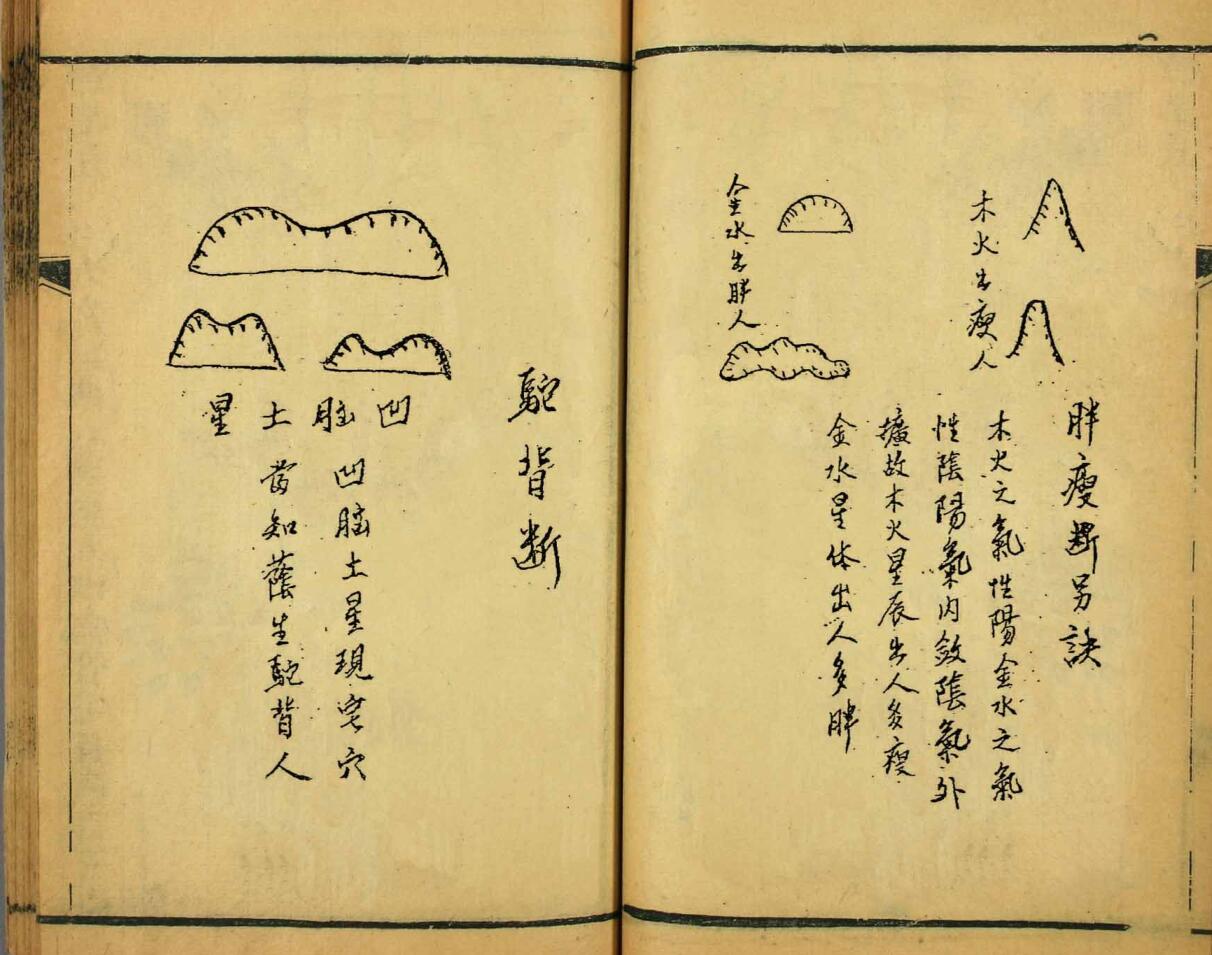 胖瘦斷另訣
木火出瘦人
木火之氣性陽金水之氣
性陰陽氣内斂陰氣外
擴故木火星辰出人多瘦
金水星体出人多胖
金水出胖人
駝背断
凹脳土星
凹脳土星現宅穴
當知蔭生駝背人